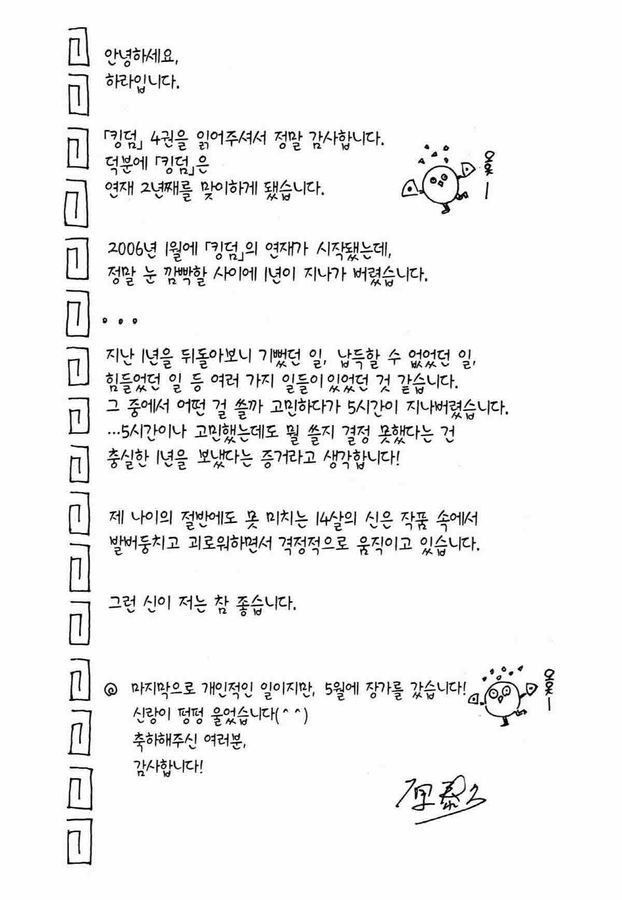 안녕하세요,
하라입니다.
「킹덤」 4권을 읽어주셔서 정말 감사합니다.
덕분에 「킹덤」은
연재 2년째를 맞이하게 됐습니다.
오오ㅡ
2006년 1월에 「킹덤」의 연재가 시작됐는데,
정말 눈 깜빡할 사이에 1년이 지나가 버렸습니다.
...
지난 1년을 뒤돌아보니 기뻤던 일, 납득할 수 없었던 일,
힘들었던 일 등 여러 가지 일들이 있었던 것 같습니다.
그 중에서 어떤 걸 쓸까 고민하다가 5시간이 지나버렸습니다.
...5시간이나 고민했는데도 뭘 쓸지 결정 못했다는 건
충실한 1년을 보냈다는 증거라고 생각합니다!
제 나이의 절반에도 못 미치는 14살의 신은 작품 속에서
발버둥치고 괴로워하면서 격정적으로 움직이고 있습니다.
그런 신이 저는 참 좋습니다.
◎ 마지막으로 개인적인 일이지만, 5월에 장가를 갔습니다!
오오ㅡ
신랑이 펑펑 울었습니다(^^)
축하해주신 여러분,
감사합니다!
原泰久